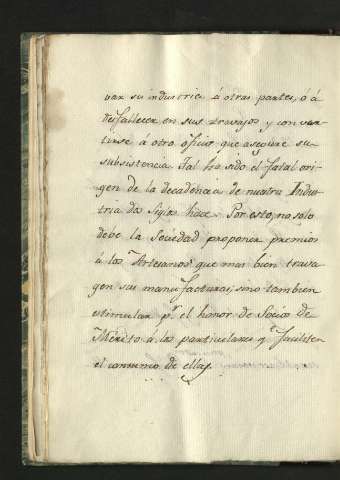 var su industria á otras partes, ó á
desfallecer en sus travajos y convertirse
á otro oficio que asegure su
subsistencia. Tal ha sido el fatal origen
de la decadencia de nuestra Industria
dos Siglos hace. Por esto, no solo
debe la Sociedad proponer premios
á los Artesanos que mas bien travagen
sus manufacturas, sino tambien
estimular pr. el honor de Socios de
Merito á los particulares qe faciliten
el consumo de ellas